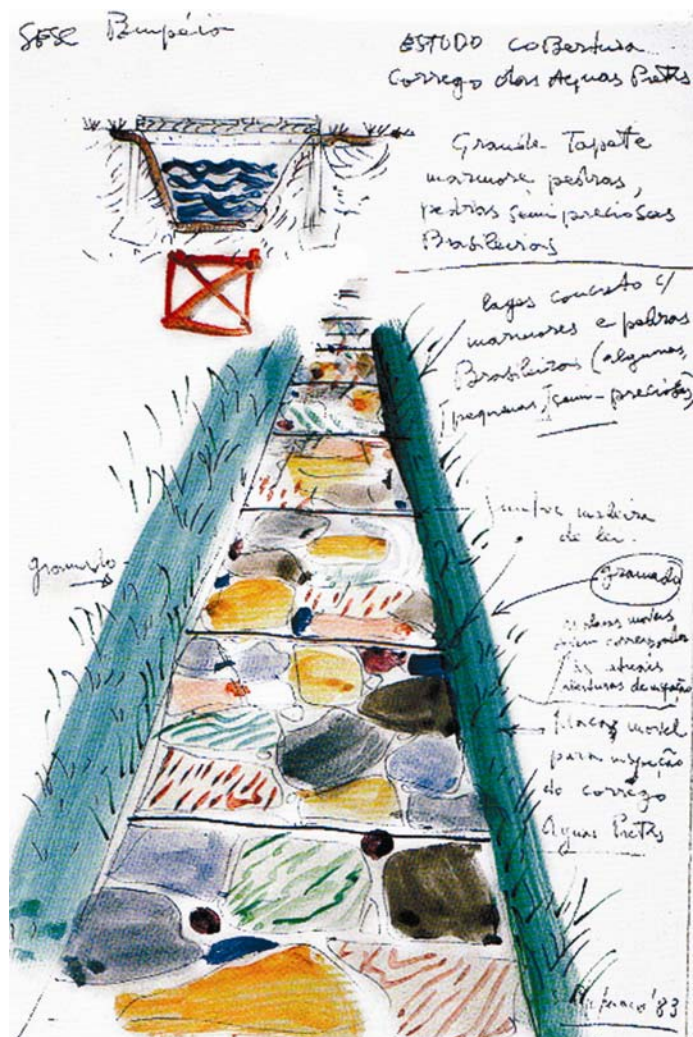 SESC Pompéia
ESTUDO coBertura
Corrego das Aguas Pretas
Grande Tapete
marmore pedras,
pedras semi preciosas
Brasileiras
lages concreto c/
marmores e pedras
Brasileiras (algumas,
pequenas, semi-preciosas)
Junta madeira
de lei.
gramado
gramado
as placas moveis
devem corresponder
às atuais
aberturas de inspeção
placas movel
para inspeção
do corrego
Aguas Pretas
'83